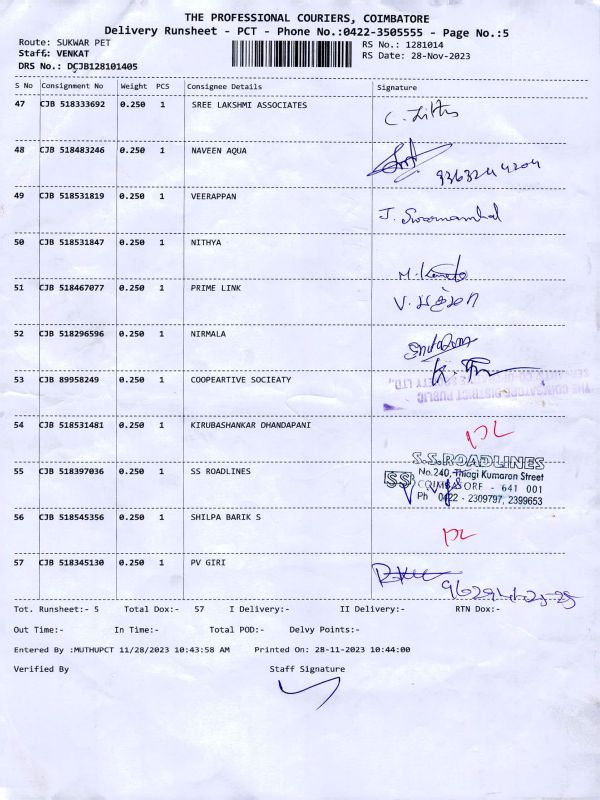 THE PROFESSIONAL COURIERS, COIMBATORE
Delivery Runsheet - PCT - Phone No.:0422-3505555 - Page No.:5
Route: SUKWAR PET
Staff: VENKAT
DRS No.: DCJB128101405
RS No.: 1281014
RS Date: 28-Nov-2023
S No Consignment No Weight PCS Consignee Details Signature
47 CJB 518333692 0.250 1 SREE LAKSHMI ASSOCIATES
48 CJB 518483246 0.250 1 NAVEEN AQUA
49 CJB 518531819 0.250 1 VEERAPPAN
50 CJB 518531847 0.250 1 NITHYA
51 CJB 518467077 0.250 1 PRIME LINK
52 CJB 518296596 0.250 1 NIRMALA
53 CJB 89958249 0.250 1 COOPEARTIVE SOCIEATY
54 CJB 518531481 0.250 1 KIRUBASHANKAR DHANDAPANI
DL
55 CJB 518397036 0.250 1 SS ROADLINES
S.S.ROADLINES
SS No.240, Thiagi Kumaran Street
COIMBATORE - 641 001
Ph 0422 - 2309797, 2399653
56 CJB 518545356 0.250 1 SHILPA BARIK S
DL
57 CJB 518345130 0.250 1 PV GIRI
Tot. Runsheet:- 5 Total Dox:- 57 I Delivery:- II Delivery:- RTN Dox:-
Out Time:- In Time:- Total POD:- Delvy Points:-
Entered By :MUTHUPCT 11/28/2023 10:43:58 AM Printed On: 28-11-2023 10:44:00
Verified By Staff Signature